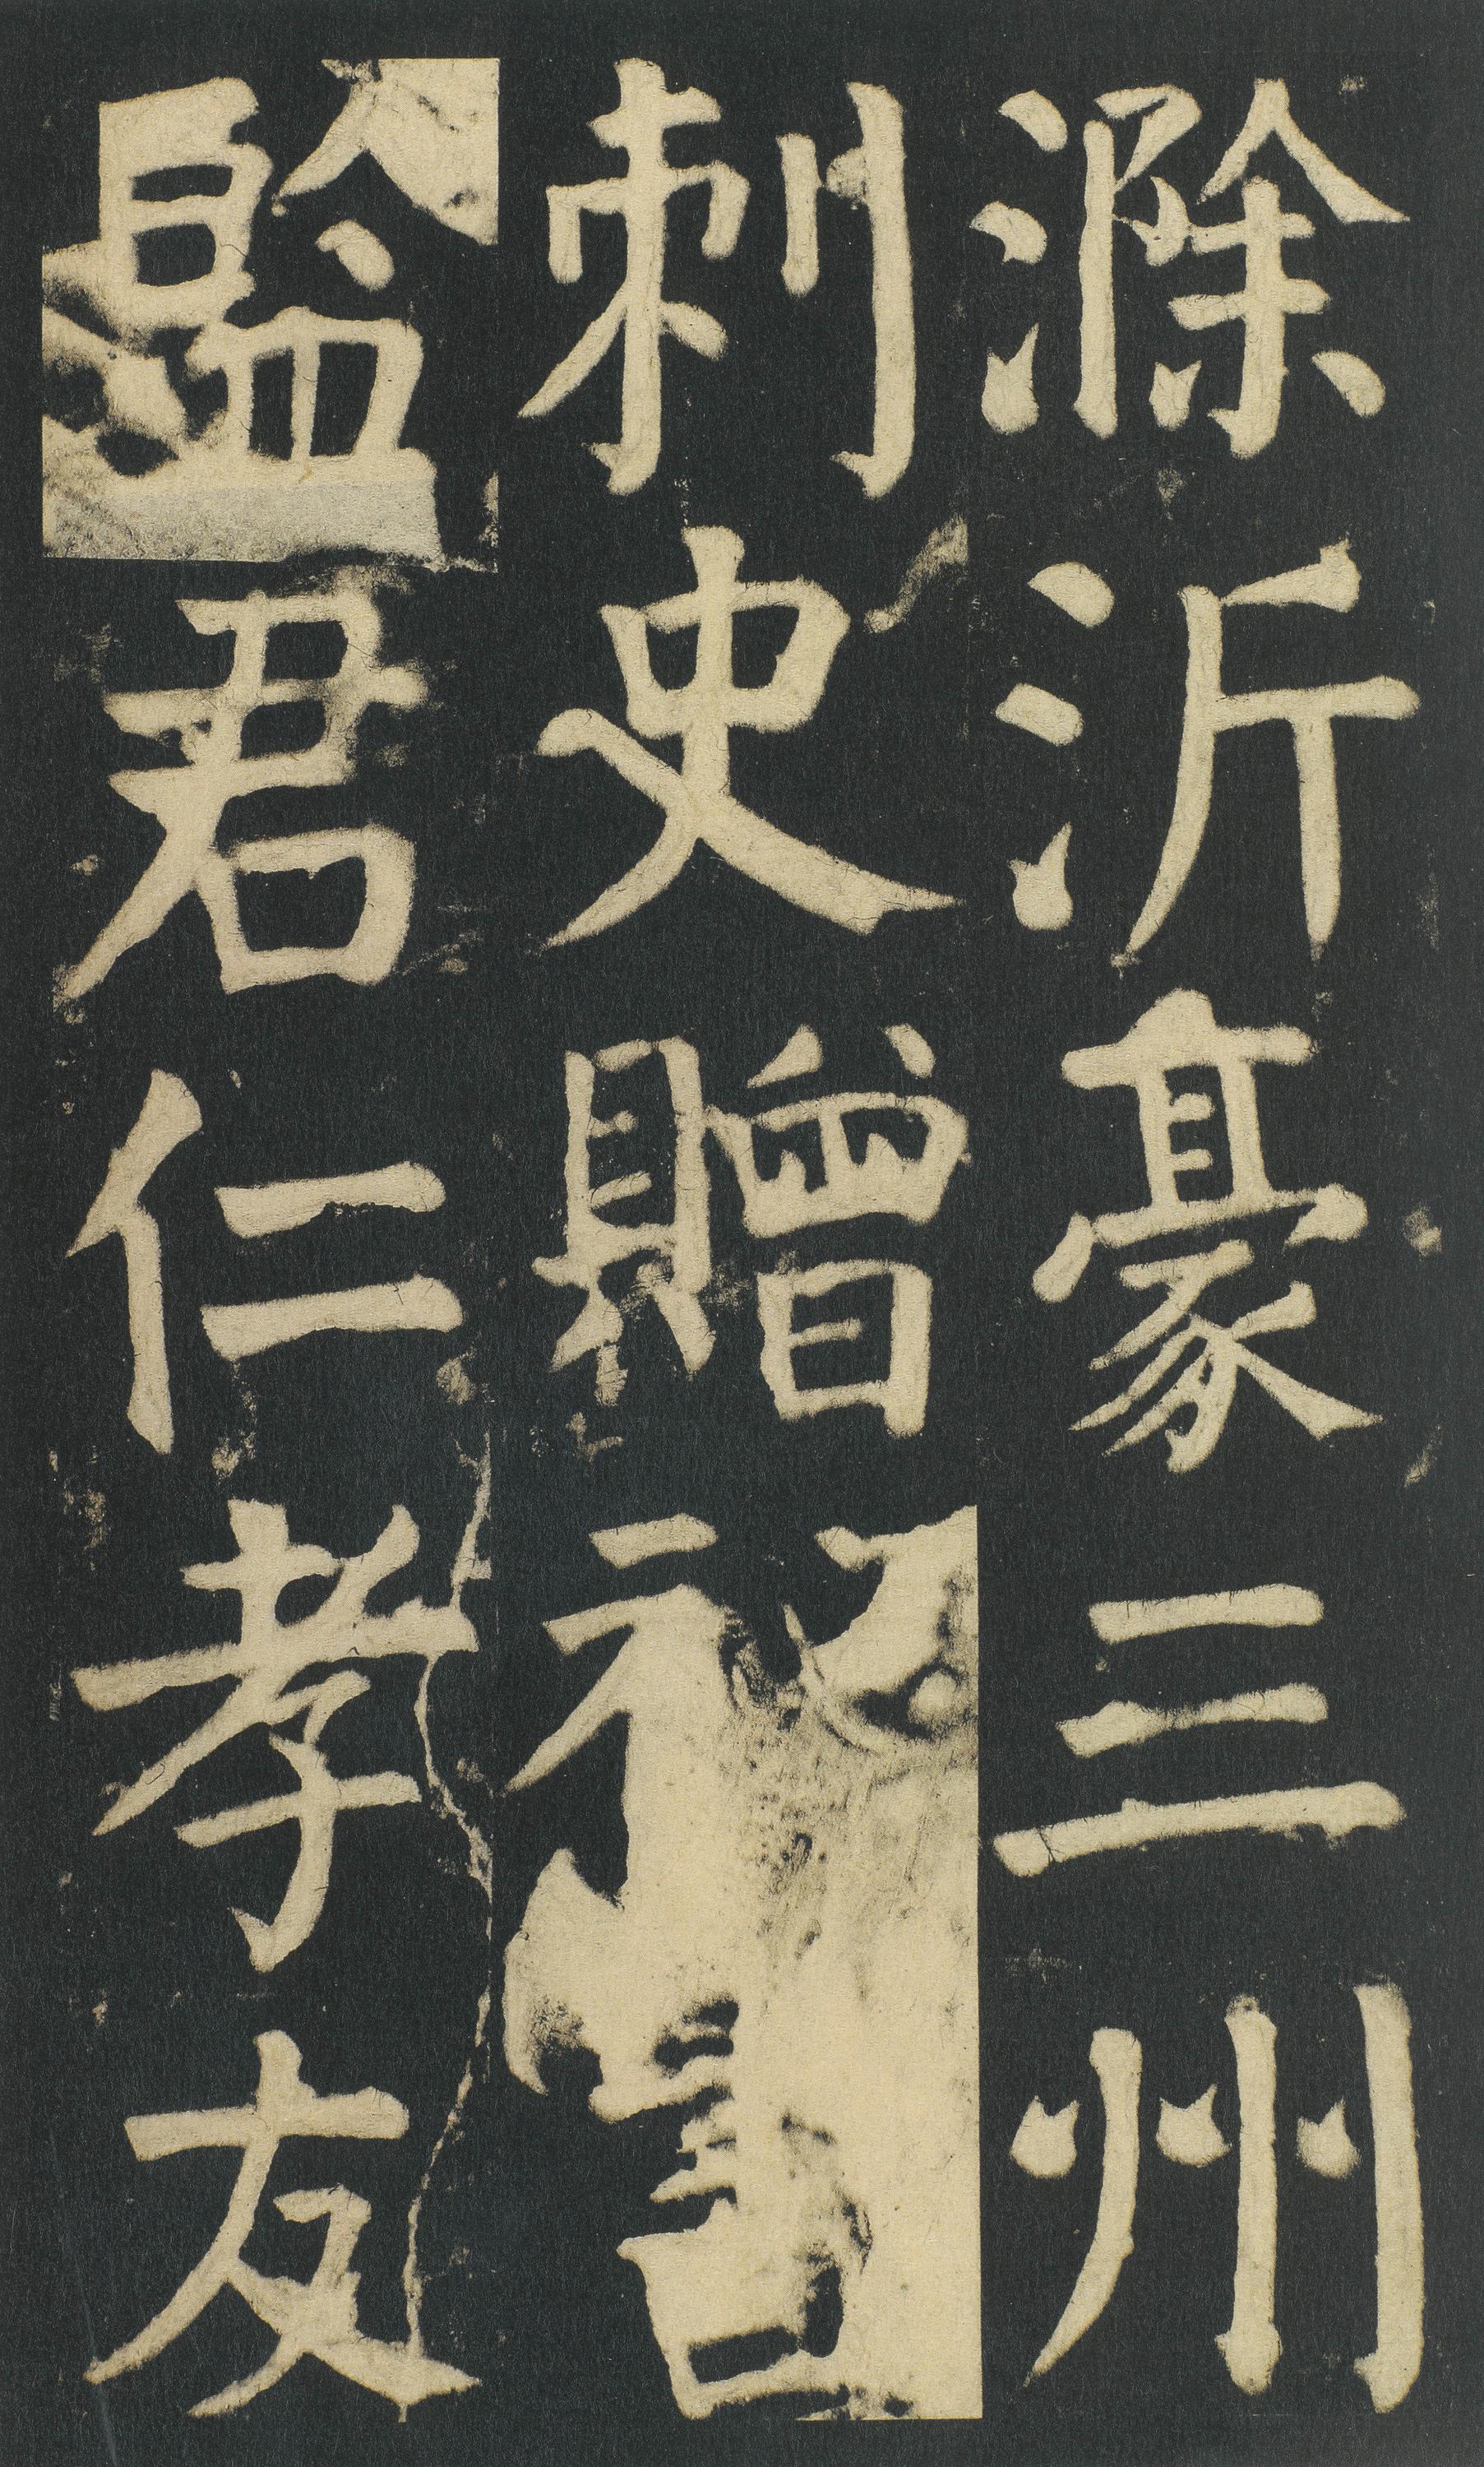 滁沂豪三州
刺史贈祕書
監君仁孝友